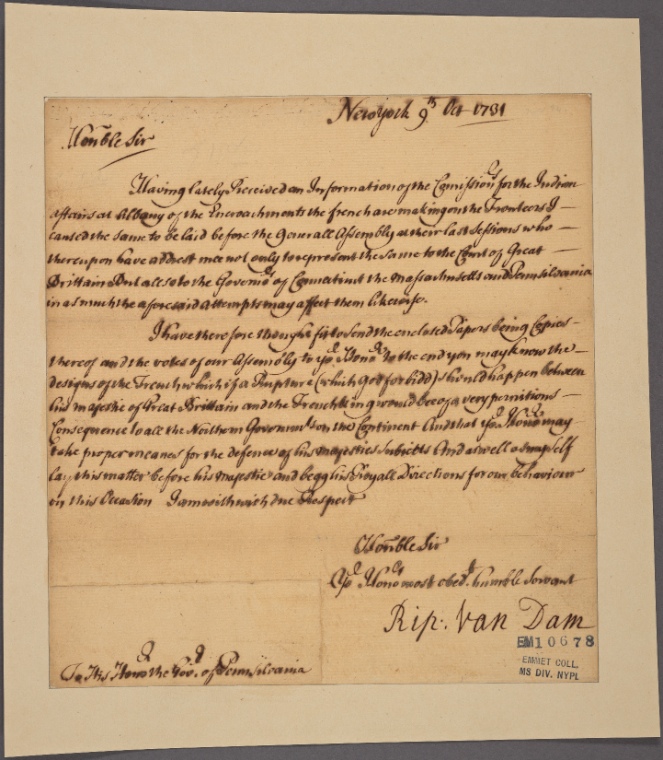 New york 9th Oct 1731
Honble Sir
Having lately Received an Information of the Comissionrs for the Indian
affairs at Albany of the Encroachments the french are making on the Fronteers I
caused the same to be laid before the Generall Assembly at their last Sessions who
thereupon have addrest me not only to represent the same to the Court of Great
Brittain But allso to the Governrs of Connecticut the Massachusetts and Pennsilvania
in as much the aforesaid Attempts may affect them likewise.
I have therefore thought fit to Send the enclosed Papers being Copies
thereof and the votes of our Assembly to Yor Honr to the end you may know the
designs of the French which if a Rupture (which God forbidd) should happen between
his majestie of Great Brittain and the French King would bee of a very pernitious
Consequence to all the Northern Governmts on the Continent And that Yor Honr may
take proper means for the defence of his majesties Subjects And as well as myself
lay this matter before his Majestie and begg his Royall Directions for our behaviour
on this Occasion I am with due Respect
Honble Sir
Yor Honrs most obedt humble Servant
Rip: Van Dam
To His Honr the Govr of Pennsilvania
EM10678
EMMET COLL.
MS DIV. NYPL